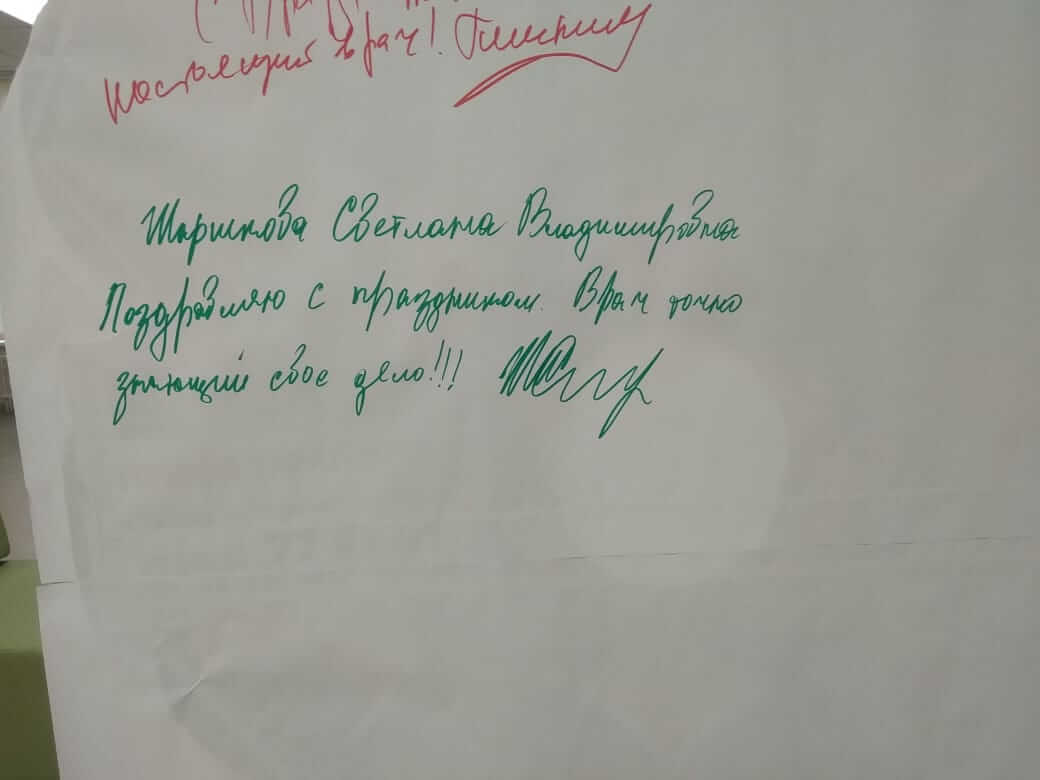 настоящий врач!
Шаршкова Светлана Владимировна
Поздравляю с праздником. Врач точно
знающий свое дело!!!